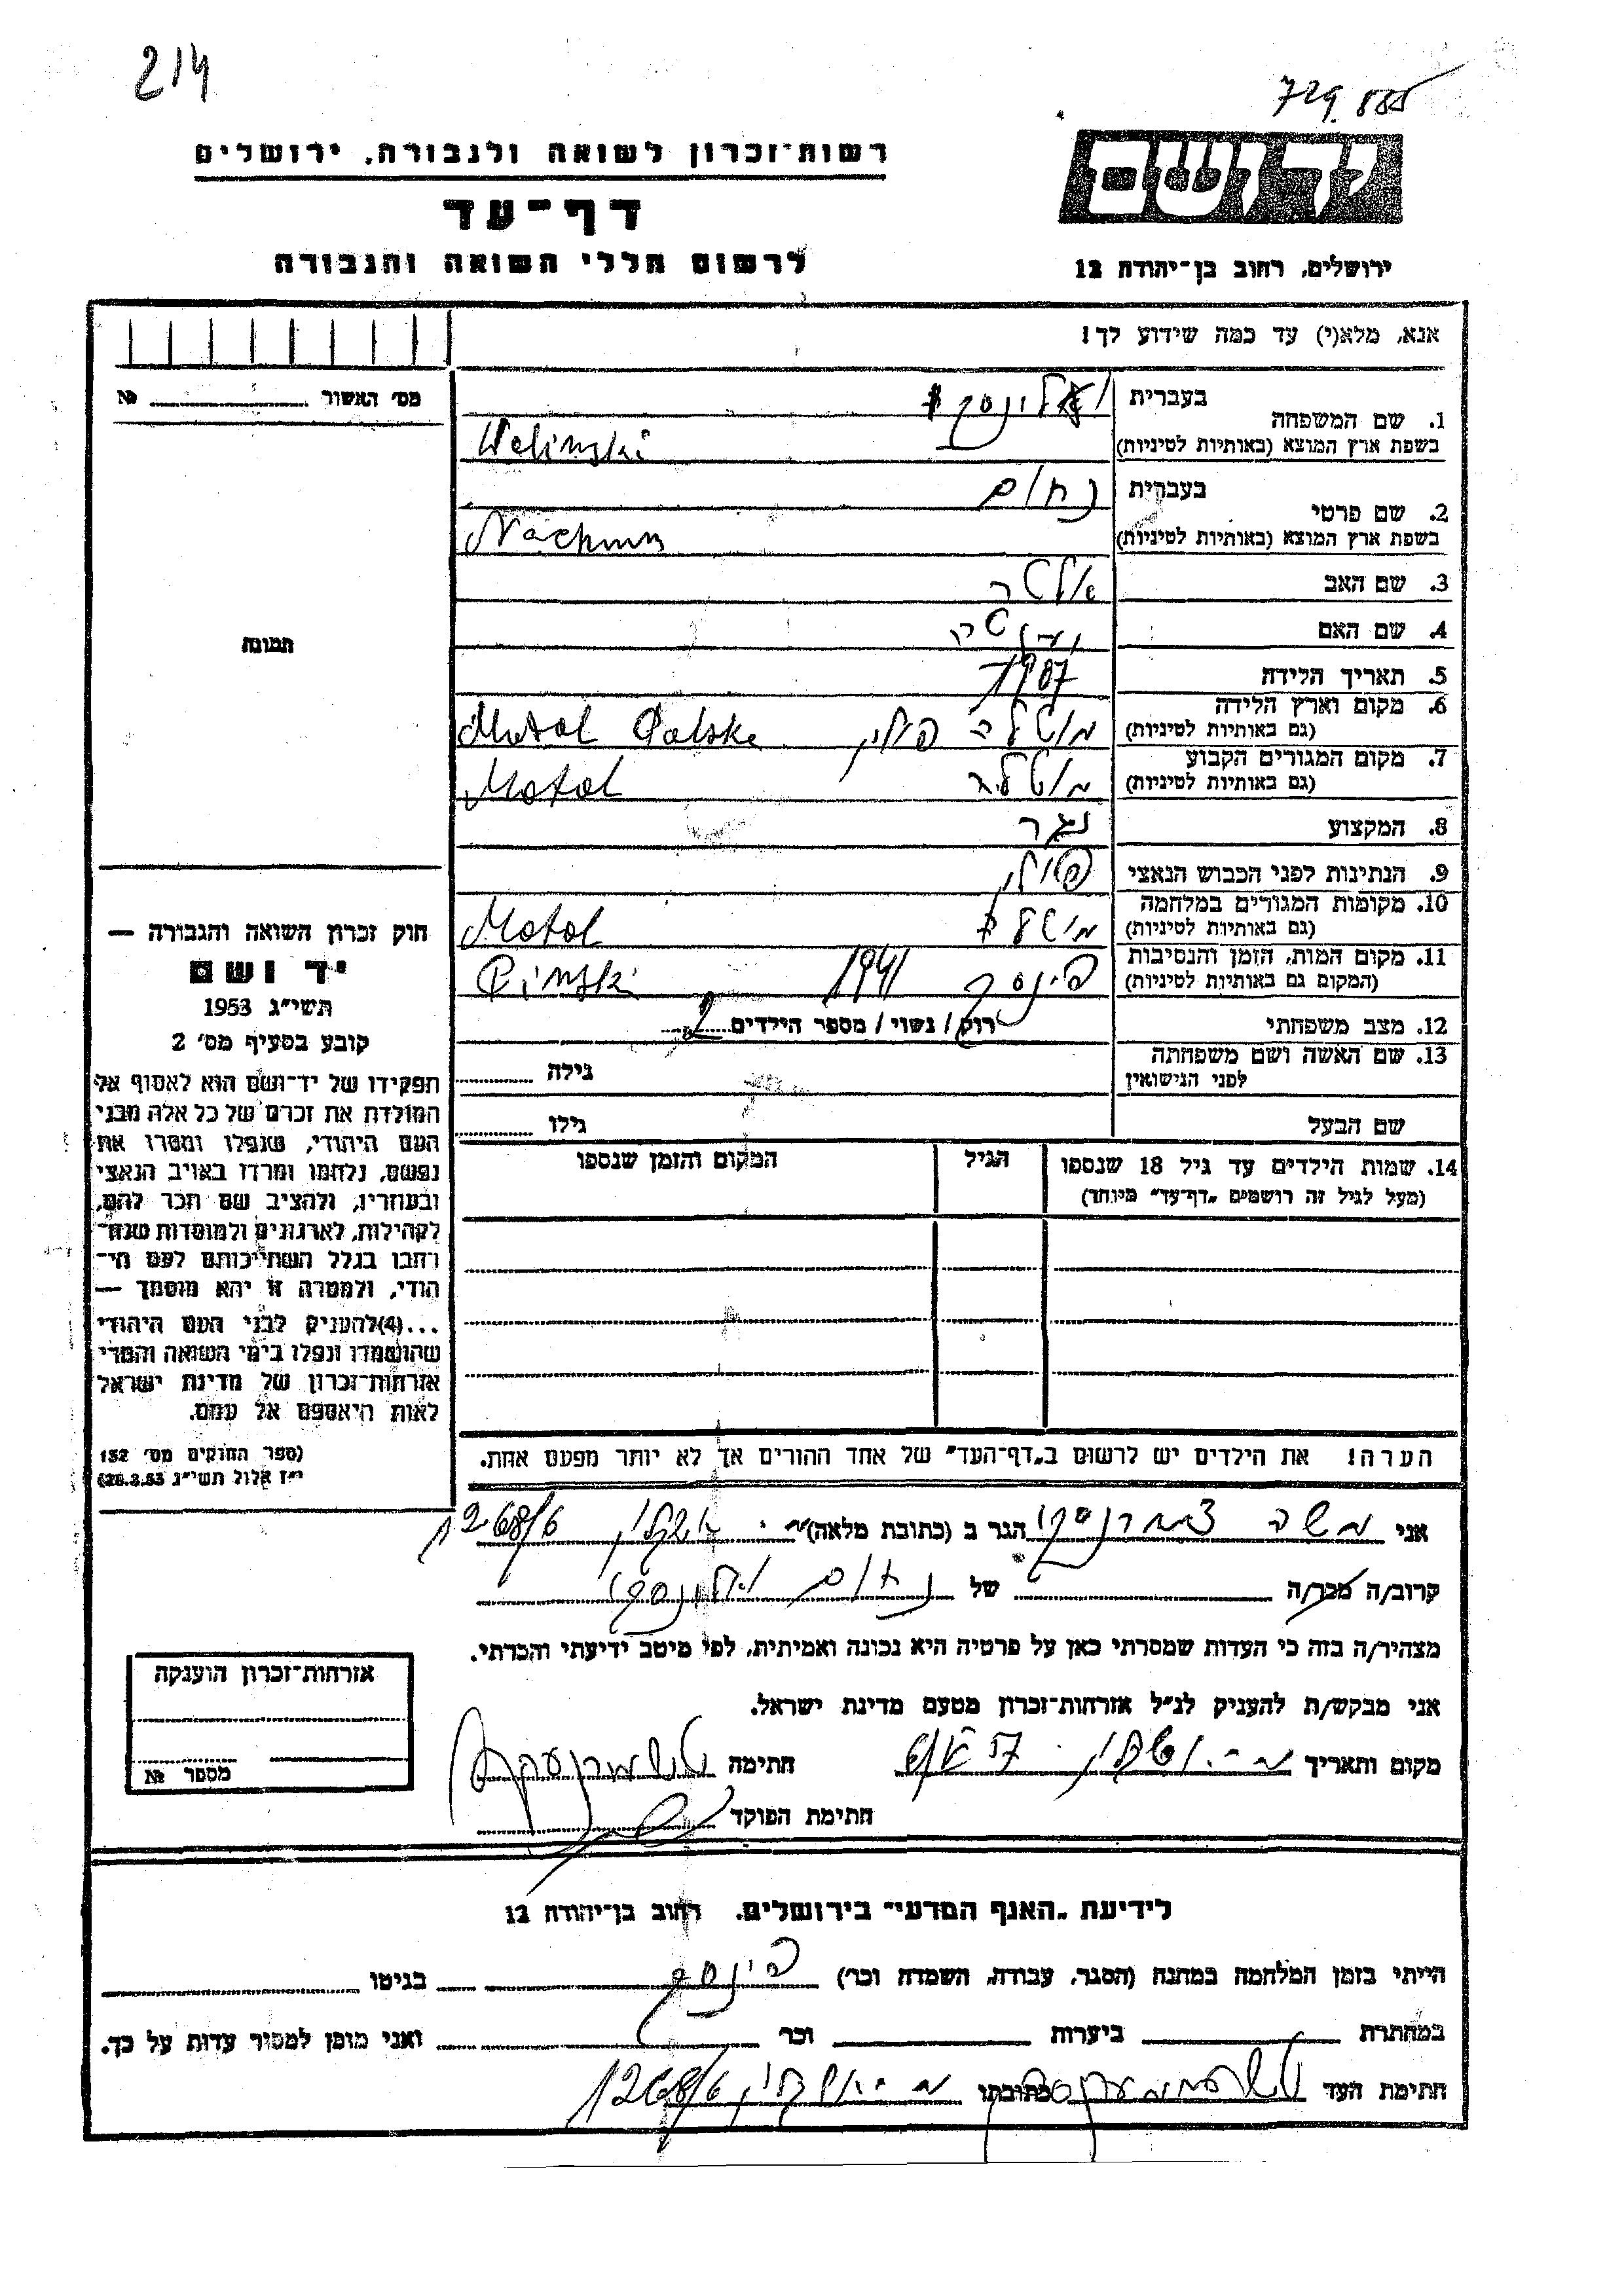 214
729.885
רשות־זכרון לשואה ולגבורה, ירושלים
יד ושם
דף־עד
לרשום חללי השואה והגבורה
ירושלים, רחוב בן־יהודה 12
אנא, מלא(י) עד כמה שידוע לך!
מס׳ האשור № 
1. שם המשפחה
בעברית
בשפת ארץ המוצא (באותיות לטיניות) Welinski
2. שם פרטי
בעברית נחום
בשפת ארץ המוצא (באותיות לטיניות) Nachum
3. שם האב
4. שם האם
5. תאריך הלידה 1907
6. מקום וארץ הלידה
(גם באותיות לטיניות) מוטלה פולין Motol Polske
7. מקום המגורים הקבוע
(גם באותיות לטיניות) מוטלה Motol
8. המקצוע נגר
9. הנתינות לפני הכבוש הנאצי פולין
10. מקומות המגורים במלחמה
(גם באותיות לטיניות) מוטלה Motol
11. מקום המות, הזמן והנסיבות
(המקום גם באותיות לטיניות) פינסק 1941 Pinski
12. מצב משפחתי רוק/ נשוי/ מספר הילדים 2
13. שם האשה ושם משפחתה
לפני הנישואין גילה
שם הבעל גילו
14. שמות הילדים עד גיל 18 שנספו
(מעל לגיל זה רושמים „דף־עד״ מיוחד)
הגיל
המקום והזמן שנספו
הערה! את הילדים יש לרשום ב„דף־העד״ של אחד ההורים אך לא יותר מפעם אחת.
תמונה
חוק זכרון השואה והגבורה —
יד ושם
תשי״ג 1953
קובע בסעיף מס׳ 2
תפקידו של יד־ושם הוא לאסוף אל
המולדת את זכרם של כל אלה מבני
העם היהודי, שנפלו ומסרו את
נפשם, נלחמו ומרדו באויב הנאצי
ובעוזריו, ולהציב שם וזכר להם,
לקהילות, לארגונים ולמוסדות שנח־
רבו בגלל השתייכותם לעם הי־
הודי, ולמטרה זו יהא מוסמך —
...(4)להעניק לבני העם היהודי
שהושמדו ונפלו בימי השואה והמרי
אזרחות־זכרון של מדינת ישראל
לאות היאספם אל עמם.
(ספר החוקים מס׳ 132
י״ז אלול תשי״ג 28.8.53)
אני משה הגר ב (כתובת מלאה) אשקלון 1268/6
קרוב/ה מכר/ה של נחום
מצהיר/ה בזה כי העדות שמסרתי כאן על פרטיה היא נכונה ואמיתית, לפי מיטב ידיעתי והכרתי.
אני מבקש/ת להעניק לנ״ל אזרחות־זכרון מטעם מדינת ישראל.
מקום ותאריך חתימה
חתימת הפוקד
אזרחות־זכרון הוענקה
מספר №
לידיעת „האגף המדעי״ בירושלים. רחוב בן־יהודה 12
הייתי בזמן המלחמה במחנה (הסגר, עבודה, השמדה וכו׳) פינסק בגיטו
במחתרת ביערות וכו׳ ואני מוכן למסור עדות על כך.
חתימת העד כתובתו 1268/6